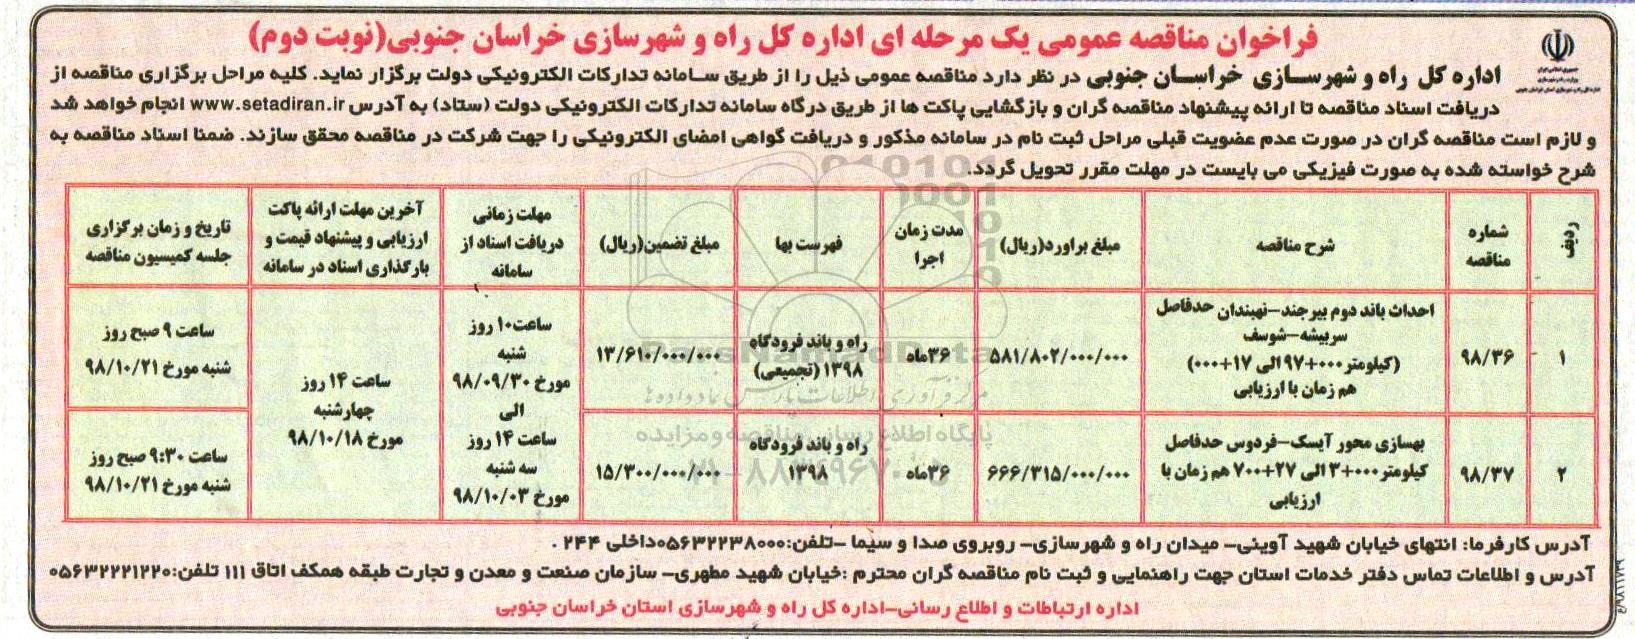 فراخوان مناقصه عمومی یک مرحله ای اداره کل راه و شهرسازی خراسان جنوبی(نوبت دوم)
جمهوری اسلامی ایران
وزارت راه و شهرسازی
اداره کل راه و شهرسازی خراسان جنوبی در نظر دارد مناقصه عمومی ذیل را از طریق سامانه تدارکات الکترونیکی دولت برگزار نماید. کلیه مراحل برگزاری مناقصه از
دریافت اسناد مناقصه تا ارائه پیشنهاد مناقصه گران و بازگشایی پاکت ها از طریق درگاه سامانه تدارکات الکترونیکی دولت (ستاد) به آدرس www.setadiran.ir انجام خواهد شد
و لازم است مناقصه گران در صورت عدم عضویت قبلی مراحل ثبت نام در سامانه مذکور و دریافت گواهی امضای الکترونیکی را جهت شرکت در مناقصه محقق سازند. ضمنا اسناد مناقصه به
شرح خواسته شده به صورت فیزیکی می بایست در مهلت مقرر تحویل گردد.
ردیف
شماره
مناقصه
شرح مناقصه
مبلغ براورد(ریال)
مدت زمان
اجرا
فهرست بها
مبلغ تضمین(ریال)
مهلت زمانی
دریافت اسناد از
سامانه
آخرین مهلت ارائه پاکت
ارزیابی و پیشنهاد قیمت و
بارگذاری اسناد در سامانه
تاریخ و زمان برگزاری
جلسه کمیسیون مناقصه
۱
۹۸/۳۶
احداث باند دوم بیرجند-نهبندان حدفاصل
سربیشه-شوسف
(کیلومتر ۰۰۰+۹۷ الی ۱۷+۰۰۰)
هم زمان با ارزیابی
۵۸۱/۸۰۲/۰۰۰/۰۰۰
۳۶ماه
راه و باند فرودگاه
۱۳۹۸ (تجمیعی)
۱۳/۶۱۰/۰۰۰/۰۰۰
ساعت۱۰ روز
شنبه
مورخ ۹۸/۰۹/۳۰
الی
ساعت ۱۴ روز
سه شنبه
مورخ ۹۸/۱۰/۰۳
ساعت ۱۴ روز
چهارشنبه
مورخ ۹۸/۱۰/۱۸
ساعت ۹ صبح روز
شنبه مورخ ۹۸/۱۰/۲۱
۲
۹۸/۳۷
بهسازی محور آیسک-فردوس حدفاصل
کیلومتر ۰۰۰+۳ الی ۲۷+۷۰۰ هم زمان با
ارزیابی
۶۶۶/۳۱۵/۰۰۰/۰۰۰
۳۶ماه
راه و باند فرودگاه
۱۳۹۸
۱۵/۳۰۰/۰۰۰/۰۰۰
ساعت ۹:۳۰ صبح روز
شنبه مورخ ۹۸/۱۰/۲۱
آدرس کارفرما: انتهای خیابان شهید آوینی- میدان راه و شهرسازی- روبروی صدا و سیما -تلفن:۰۵۶۳۲۲۳۸۰۰۰داخلی ۲۴۴ .
آدرس و اطلاعات تماس دفتر خدمات استان جهت راهنمایی و ثبت نام مناقصه گران محترم :خیابان شهید مطهری- سازمان صنعت و معدن و تجارت طبقه همکف اتاق ۱۱۱ تلفن:۰۵۶۳۲۲۲۱۲۲۰
اداره ارتباطات و اطلاع رسانی-اداره کل راه و شهرسازی استان خراسان جنوبی
ParsNamadData
پایگاه اطلاع رسانی مناقصه و مزایده